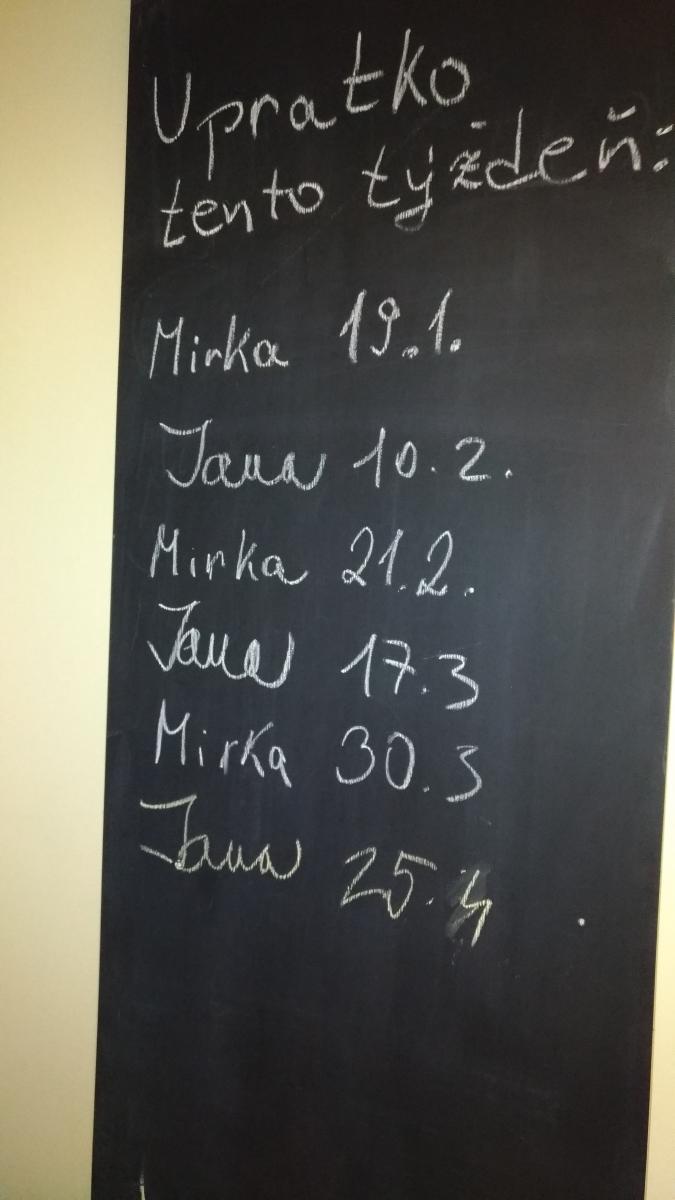 Upratko
tento týždeň:
Mirka 19.1.
Jana 10.2.
Mirka 21.2.
Jana 17.3
Mirka 30.3
Jana 25.4